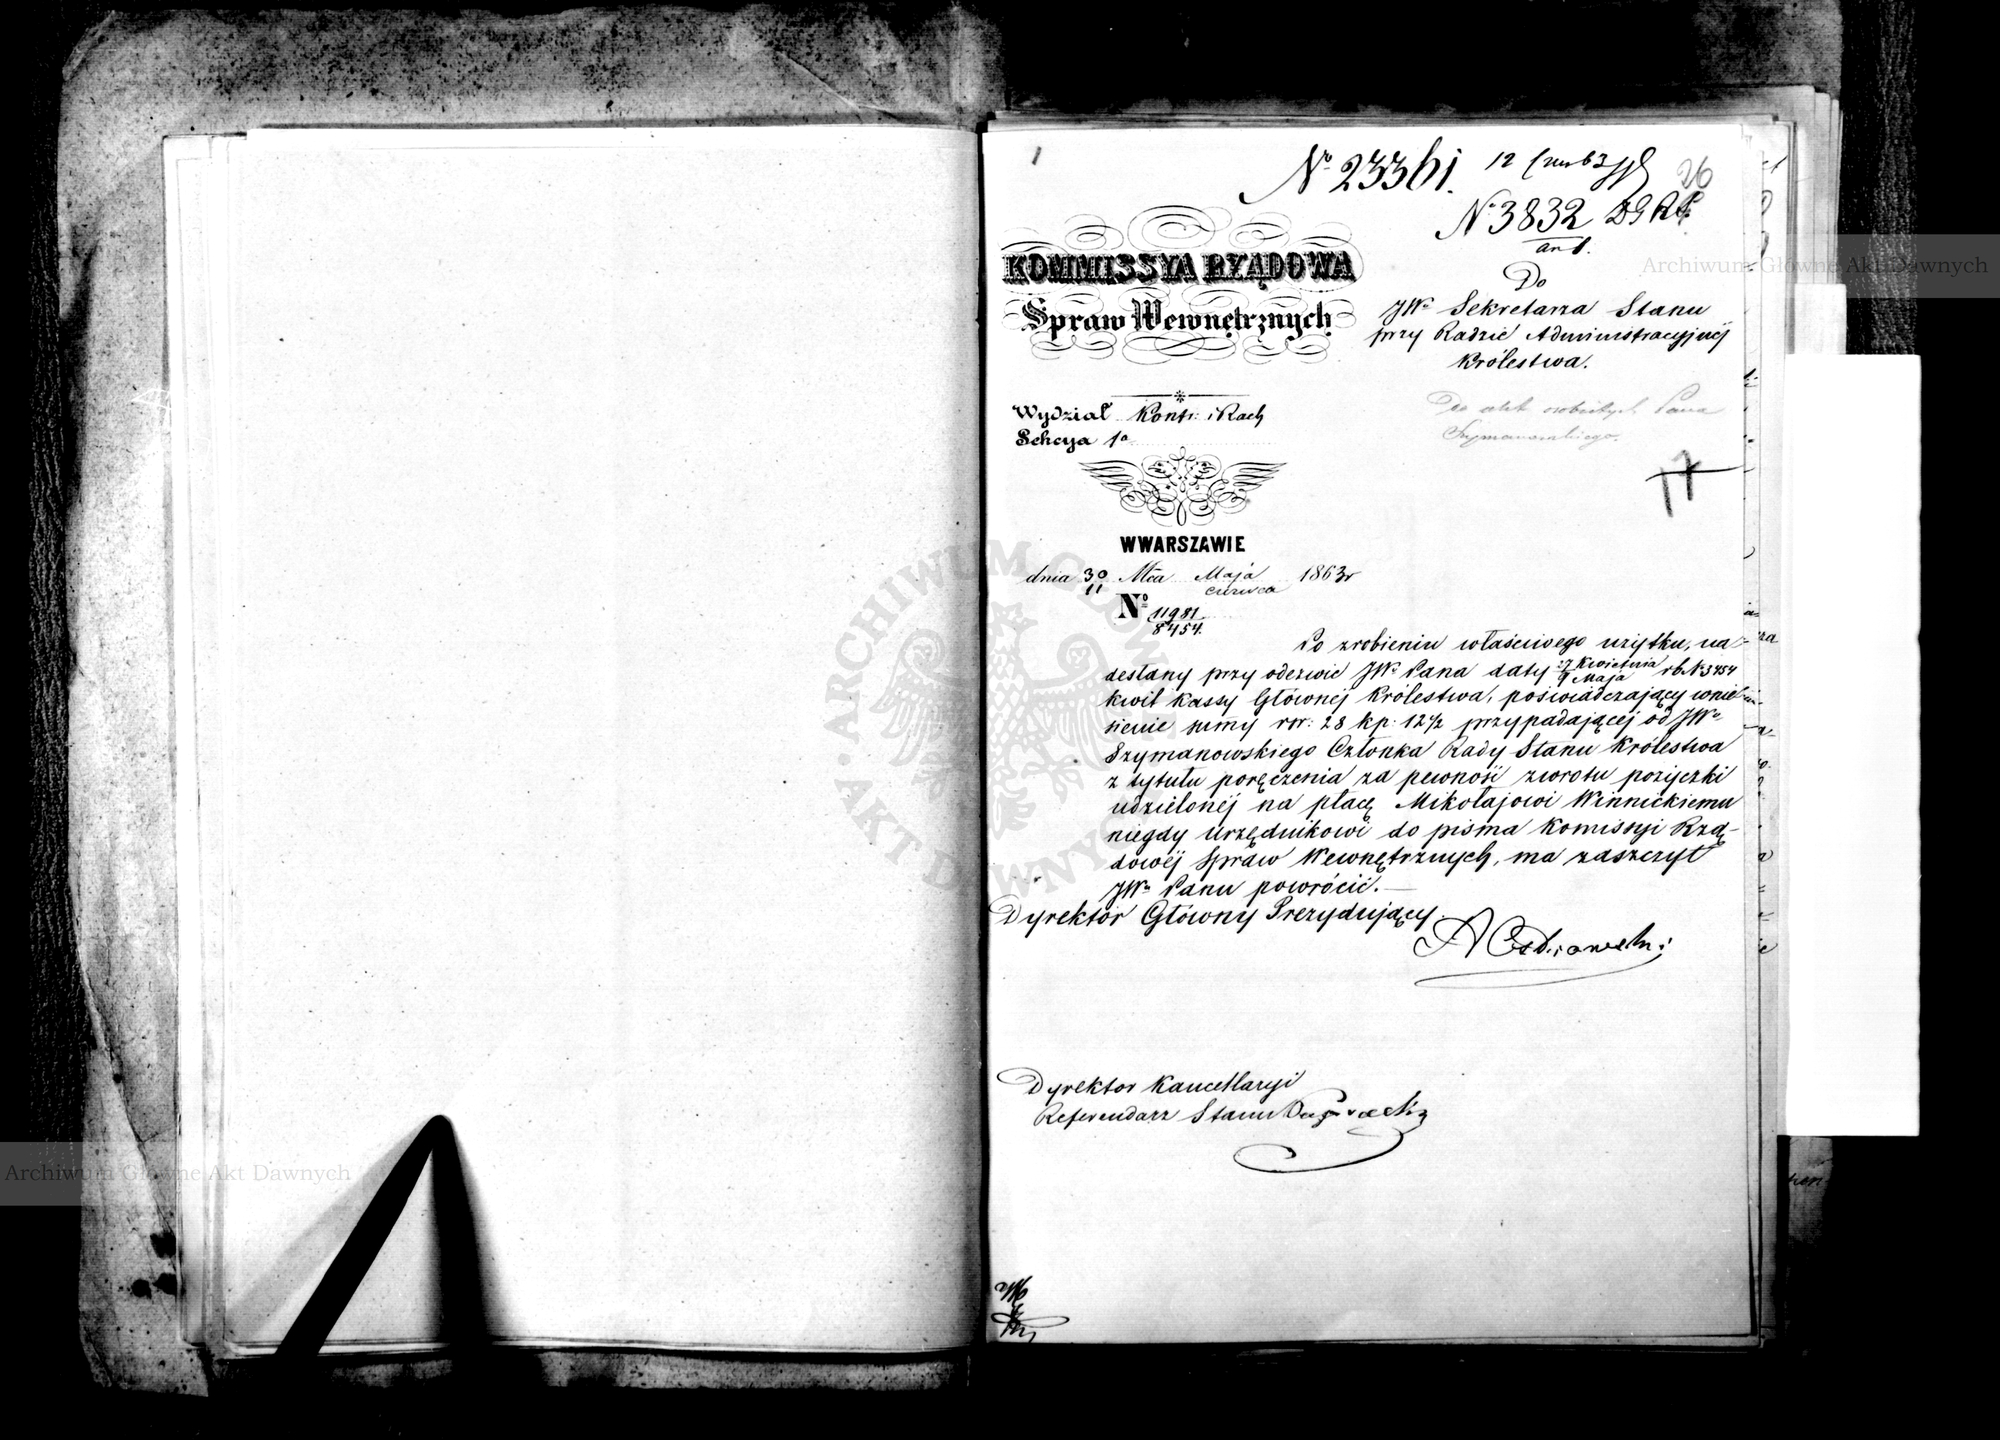 1
No 23361. 12 Czer 63
26
No 3832 DGRS.
an 1.
KOMMISSYA RZĄDOWA
Spraw Wewnętrznych
Do
JWo Sekretarza Stanu
przy Radzie Administracyjnéj
Królestwa.
Wydział Kontr: i Rach
Sekcya 1a
Do akt osobistych Pana
Szymanowskiego.
17
WWARSZAWIE
dnia 30/11 Mca Maja/Czerwca 1863r
No 11981/8454.
Po zrobieniu właściwego użytku, na-
desłany przy odezwie JWo Pana daty 27 Kwietnia/9 Maja rb. N 3454
kwit Kassy Głównéj Królestwa, poświadczający wnie-
sienie summy rsr: 28 kp: 12½ przypadającéj od JWo
Szymanowskiego Członka Rady Stanu Królestwa
z tytułu poręczenia za pewność zwrotu pożyczki
udzielonéj na płacę Mikołajowi Winnickiemu
niegdy urzędnikowi do pisma Komissyi Rzą-
dowéj Spraw Wewnętrznych, ma zaszczyt
JWu Panu powrócić.
Dyrektor Główny Prezydujący
A Ostrowski
Dyrektor Kancellaryi
Referendarz Stanu
ARCHIWUM GŁÓWNE AKT DAWNYCH
Archiwum Główne Akt Dawnych
Archiwum Główne Akt Dawnych